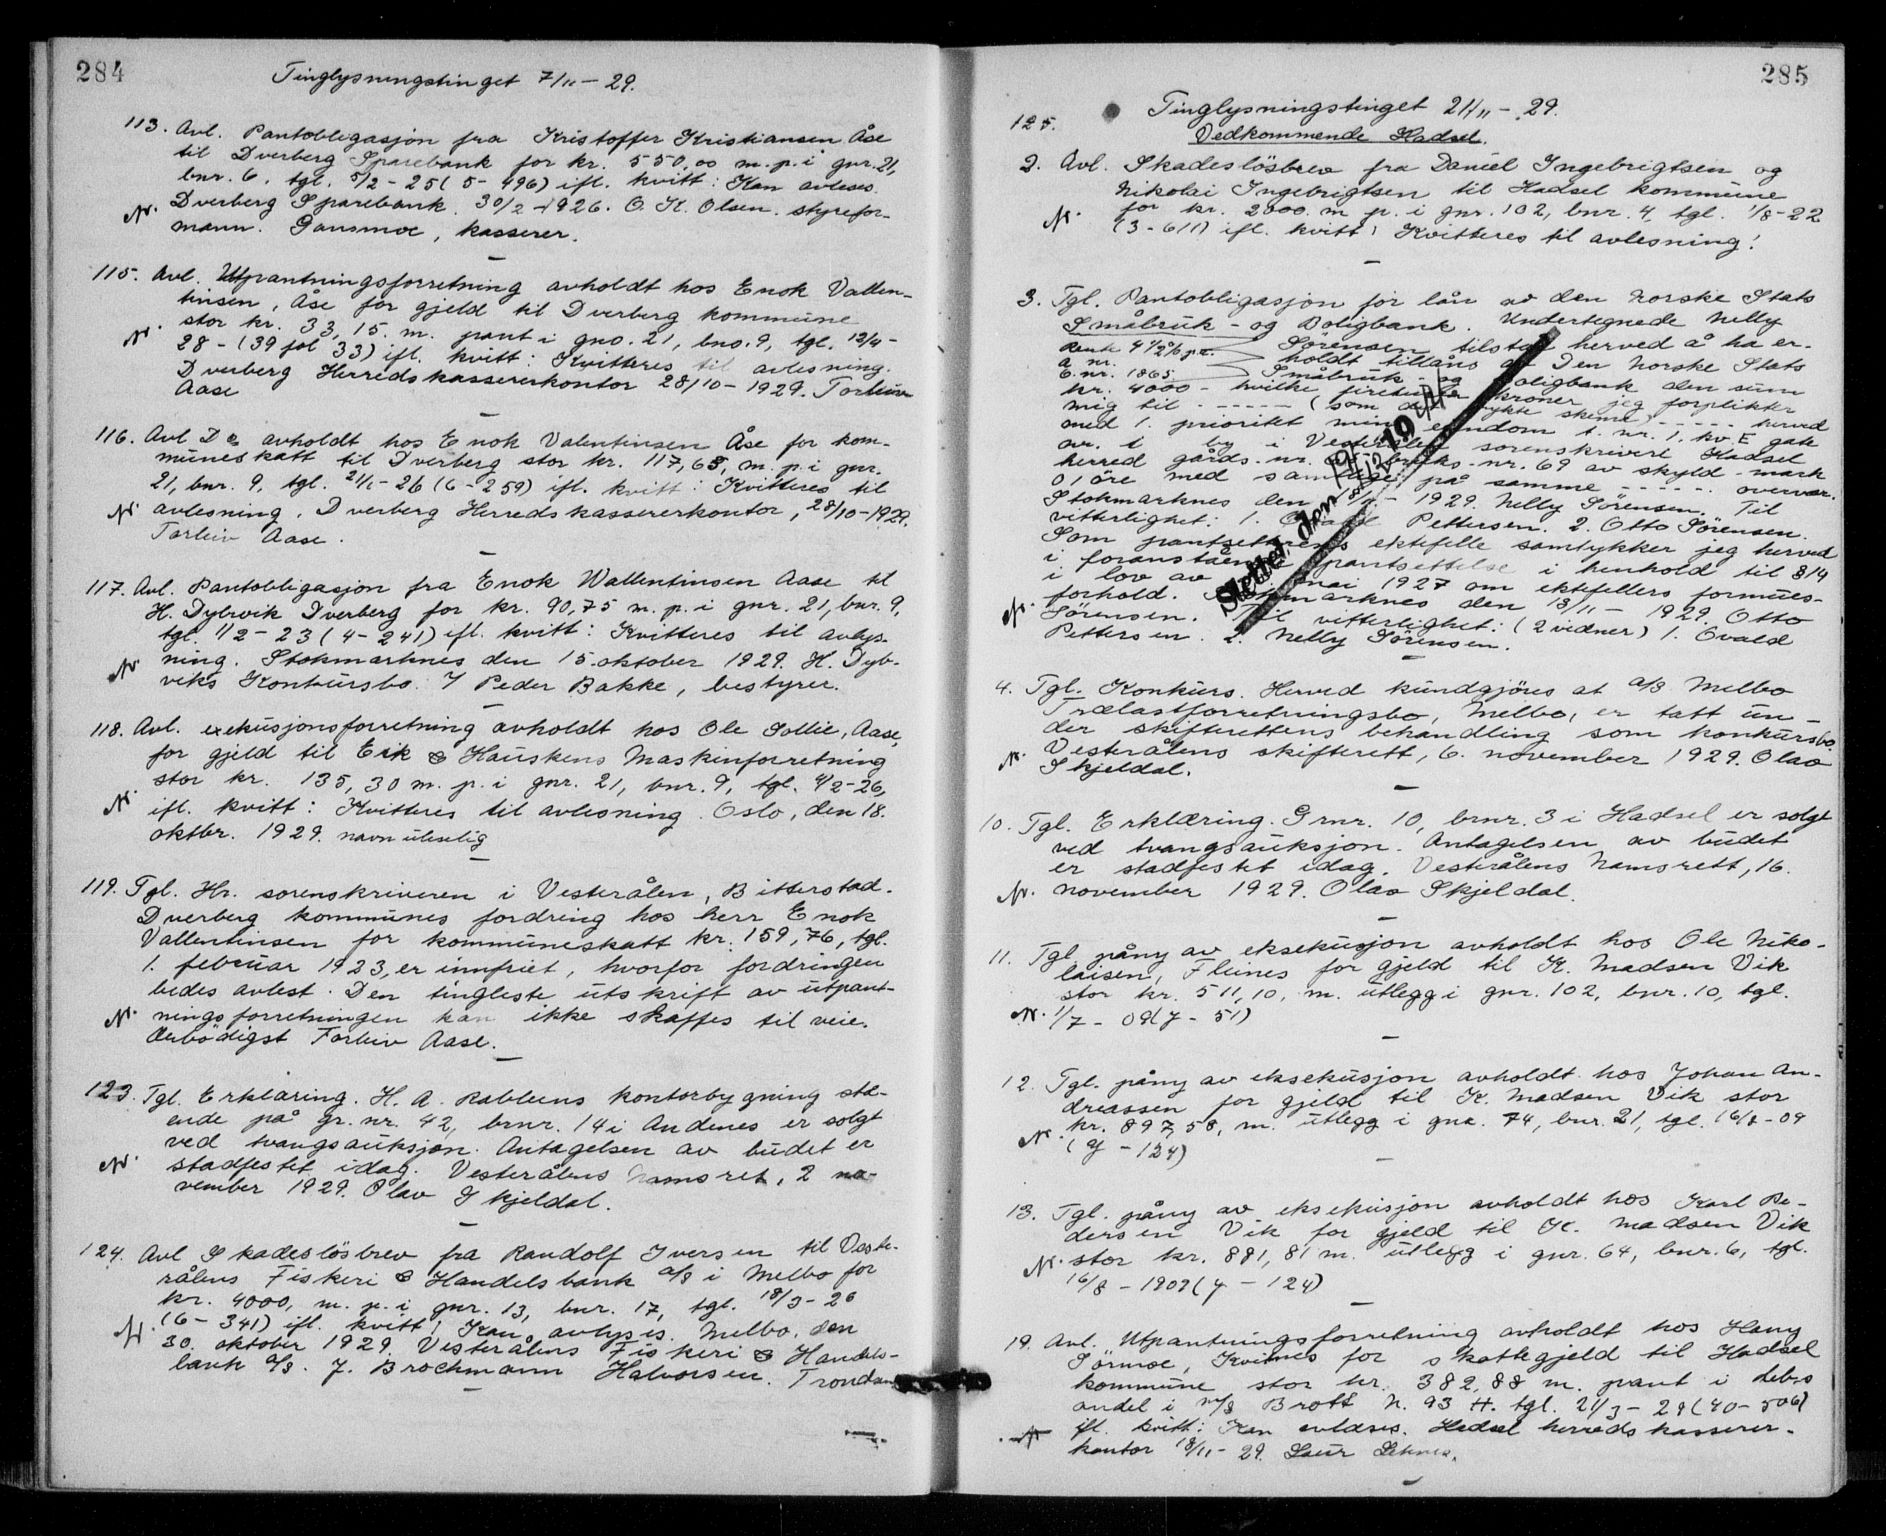 284
Tinglysningstinget 7/11 - 29.
113. Avl. Pantobligasjon fra Kristoffer Kristiansen Åse
til Dverberg Sparebank for kr. 550,00 m. p. i gnr. 21,
bnr. 6. tgl. 5/2 - 25 (5 - 496) ifl. kvitt: Kan avleses.
Dverberg Sparebank 30/2 - 1926. O. K. Olsen. styrefor-
mann. Gausmoe, kasserer.
115. Avl. Utpantningsforretning avholdt hos Enok Vallen-
tinsen, Åse for gjeld til Dverberg kommune
stor kr. 33,15. m. pant i gno. 21, bno. 9, tgl. 12/4 -
28 - (39 fol 33) ifl. kvitt: Kvitteres til avlesning.
Dverberg Herredskassererkontor 28/10 - 1929. Torleiv
Aase
116. Avl Do avholdt hos Enok Valentinsen Åse for kom-
muneskatt til Dverberg stor kr. 117,65, m. p. i gnr.
21, bnr. 9, tgl. 21/1 - 26 (6 - 259) ifl. kvitt: Kvitteres til
avlesning. Dverberg Herredskassererkontor, 28/10 - 1929.
Torleiv Aase.
117. Avl. Pantobligasjon fra Enok Wallentinsen Aase til
H. Dybvik Dverberg for kr. 90,75 m. p. i gnr. 21, bnr. 9,
tgl. 1/2 - 23 (4 - 241) ifl. kvitt: Kvitteres til avlys-
ning. Stokmarknes den 15. oktober 1929. H. Dyb-
viks Konkursbo. Peder Bakke, bestyrer.
118. Avl. exekusjonsforretning avholdt hos Ole Sollie, Aase,
for gjeld til Erik & Hauskens Maskinforretning
stor kr. 135,30 m. p. i gnr. 21, bnr. 9, tgl. 4/2 - 26,
ifl. kvitt: Kvitteres til avlesning. Oslo, den 18.
oktbr. 1929. navn uleselig
119. Tgl. Hr. sorenskriveren i Vesterålen, Bitterstad.
Dverberg kommunes fordring hos herr Enok
Vallentinsen for kommuneskatt kr. 159,76, tgl.
1. februar 1923, er innfriet, hvorfor fordringen
bedes avlest. Den tingleste utskrift av utpant-
ningsforretningen kan ikke skaffes til veie.
Ærbødigst Torleiv Aase.
123. Tgl. Erklæring. H. A. Robleens kontorbygning stå-
ende på gr. nr. 42, brnr. 14 i Andenes er solgt
ved tvangsauksjon. Antagelsen av budet er
stadfestet idag. Vesterålens Namsret, 2 no-
vember 1929. Olav Skjeldal.
124. Avl Skadesløsbrev fra Randolf Iversen til Veste-
rålens Fiskeri & Handelsbank a/s i Melbo for
kr. 4000, m. p. i gnr. 13, bnr. 17, tgl. 18/3 - 26
(6 - 341) ifl. kvitt: Kan avlyses. Melbo, den
30. oktober 1929. Vesterålens Fiskeri & Handels-
bank a/s. J. Brochmann Halvorsen.
285
125.
Tinglysningstinget 21/11 - 29.
Vedkommende Hadsel.
2. Avl. Skadesløsbrev fra Daniel Ingebrigtsen og
Nikolai Ingebrigtsen til Hadsel kommune
for kr. 2000. m p. i gnr. 102, bnr. 4, tgl. 1/8 - 22
(3 - 611) ifl. kvitt: Kvitteres til avlesning!
3. Tgl. Pantobligasjon for lån av den Norske Stats
Småbruk - og Boligbank. Undertegnede Nelly
Sørensen tilstår herved å ha er-
Rente 4 1/2 % p.a.
holdt tillåns av Den Norske Stats
E. nr. 1865 Småbruk - og Boligbank den sum
kr. 4000 - hvilke firetusen kroner jeg forplikter
mig til - - - - - (som det trykte skema) - - - - - herved
med 1. prioritet min eiendom t. nr. 1, kv. E gate
nr. t by i Vesterålen sorenskriveri Hadsel
herred gårds-nr. bruks-nr. 69 av skyld - mark
01 øre med samtlige på samme - - - - - overvær.
Stokmarknes den 1929. Nelly Sørensen. Til
vitterlighet: 1. Pettersen. 2. Otto Sørensen.
Som pantsetterens ektefelle samtykker jeg herved
i foranstående pantsettelse i henhold til § 14
i lov av mai 1927 om ektefellers formues-
forhold. Stokmarknes den 13/11 - 1929. Otto
Sørensen. Til vitterlighet: (2 vidner) 1. Evald
Pettersen. 2. Nelly Sørensen.
Slettet, den 19/12 19
4. Tgl. Konkurs. Herved kundgjöres at a/s Melbo
Trælastforretningsbo, Melbo, er tatt un-
der skifterettens behandling som konkursbo.
Vesterålens skifterett, 6. november 1929. Olav
Skjeldal.
10. Tgl. Erklæring. Grnr. 10, brnr. 3 i Hadsel er solgt
ved tvangsauksjon. Antagelsen av budet
er stadfestet idag. Vesterålens Namsrett, 16.
november 1929. Olav Skjeldal.
11. Tgl. påny av eksekusjon avholdt hos Ole Niko-
laisen, Fleines for gjeld til K. Madsen Vik
stor kr. 511,10, m. utlegg i gnr. 102, bnr. 10, tgl.
1/7 - 09 (7 - 51)
12. Tgl. påny av eksekusjon avholdt hos Johan An-
dreassen for gjeld til K. Madsen Vik stor
kr. 897,58, m. utlegg i gnr. 74, bnr. 21, tgl. 16/8 - 09
(7 - 124)
13. Tgl. påny av eksekusjon avholdt hos Karl Pe-
dersen Vik for gjeld til K. Madsen Vik
stor kr. 881,81 m. utlegg i gnr. 64, bnr. 6, tgl.
16/8 - 1909 (7 - 124)
19. Avl. Utpantningsforretning avholdt hos Hans
Sörmoe, Kvitnes for skattegjeld til Hadsel
kommune stor kr. 382,88 m. pant i debs
andel i m/s Brott N. 93 H. tgl. 21/3 - 29 (40 - 506)
ifl. kvitt: Kan avleses. Hadsel herredskasserer-
kontor 18/11 - 29.